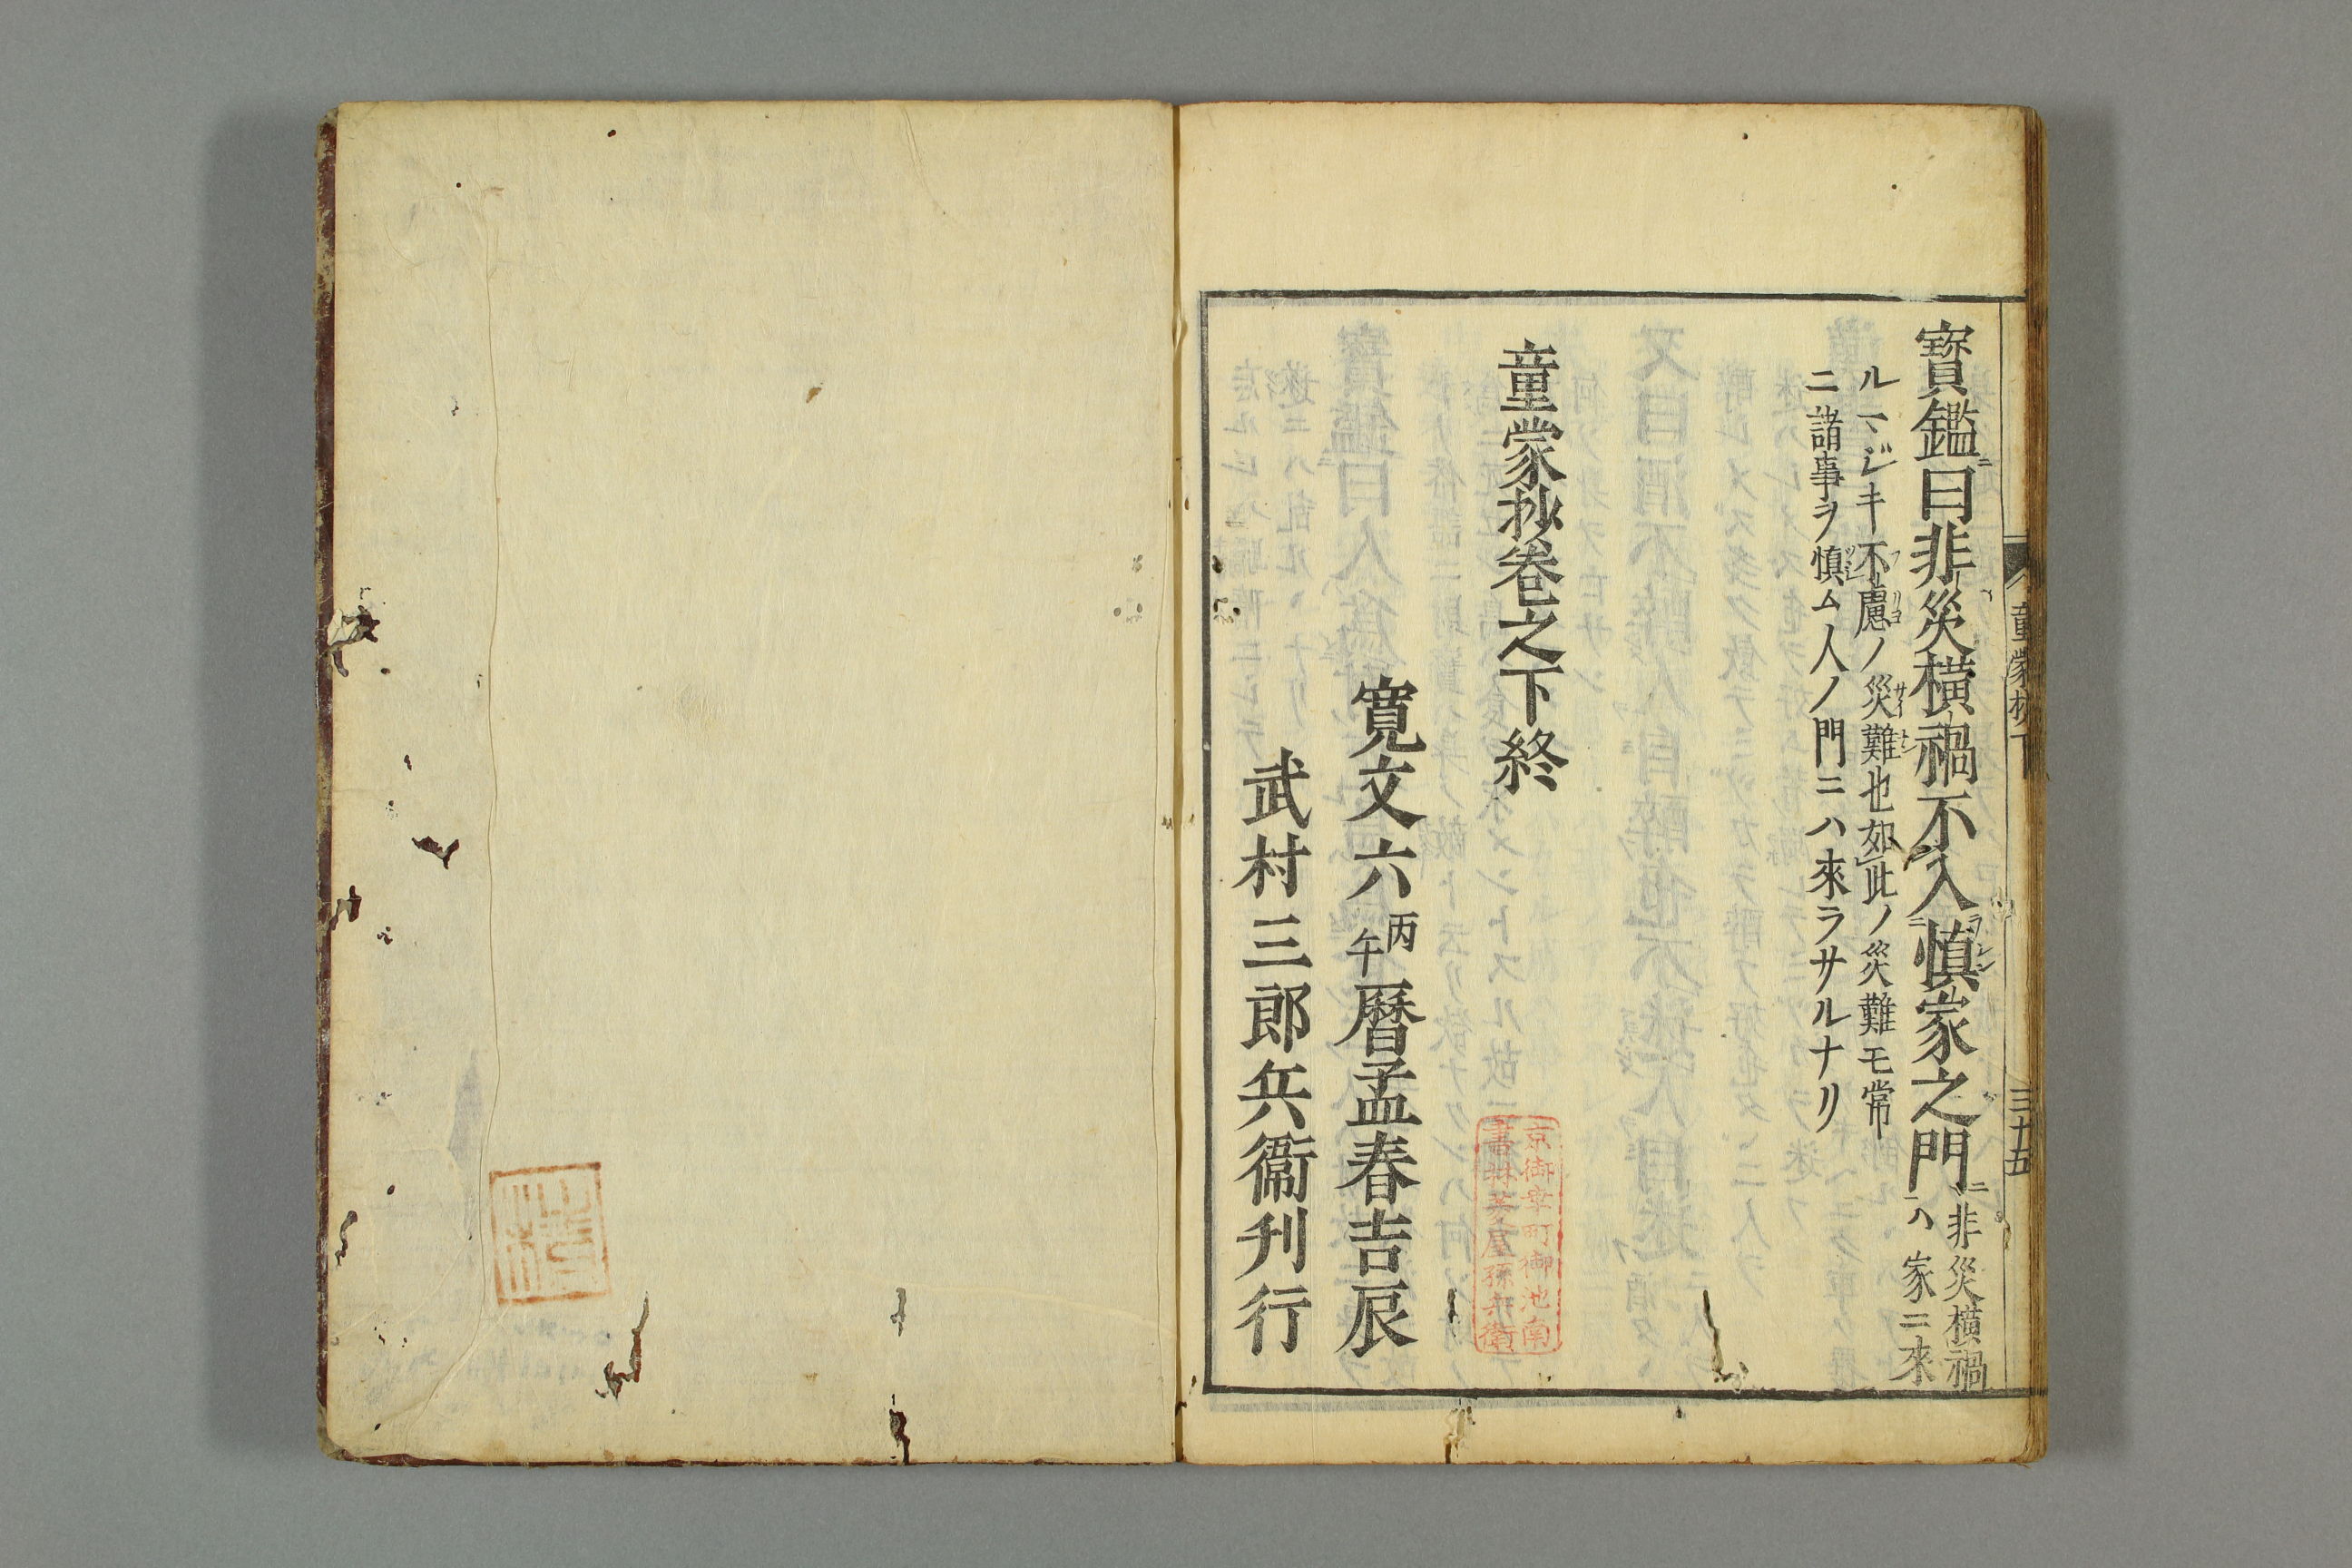 寳鑑曰非災横禍不入慎家之門 非災横禍ハ家ニ來
ルマジキ不慮ノ災難也如此ノ災難モ常
ニ諸事ヲ慎ム人ノ門ニハ來ラサルナリ
童蒙抄卷之下終
寛文六丙午暦孟春吉辰
武村三郎兵衞刊行
京御幸町御池南
書林菱屋孫兵衛
童蒙抄下
三十五